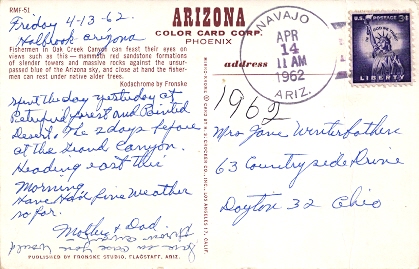 RMF-51
ARIZONA
COLOR CARD CORP.
PHOENIX
Friday 4-13-62
Holbrook Arizona
Fishermen in Oak Creek Canyon can feast their eyes on
views such as this — mammoth red sandstone formations
of slender towers and massive rocks against the unsur-
passed blue of the Arizona sky, and close at hand the fisher-
men can rest under native alder trees.
Kodachrome by Fronske
Spent the day yesterday at
Petrified forest and Painted
Desert. The 2 days before
at the Grand Canyon.
Heading east this
Morning.
Have had fine weather
so far.
Mother + Dad
PUBLISHED BY FRONSKE STUDIO, FLAGSTAFF, ARIZ.
address
NAVAJO
APR
14
11 AM
1962
ARIZ.
U.S. POSTAGE 3¢
LIBERTY
1962
Mrs Jane Winterbothem
63 Countryside Drive
Dayton 32 Ohio